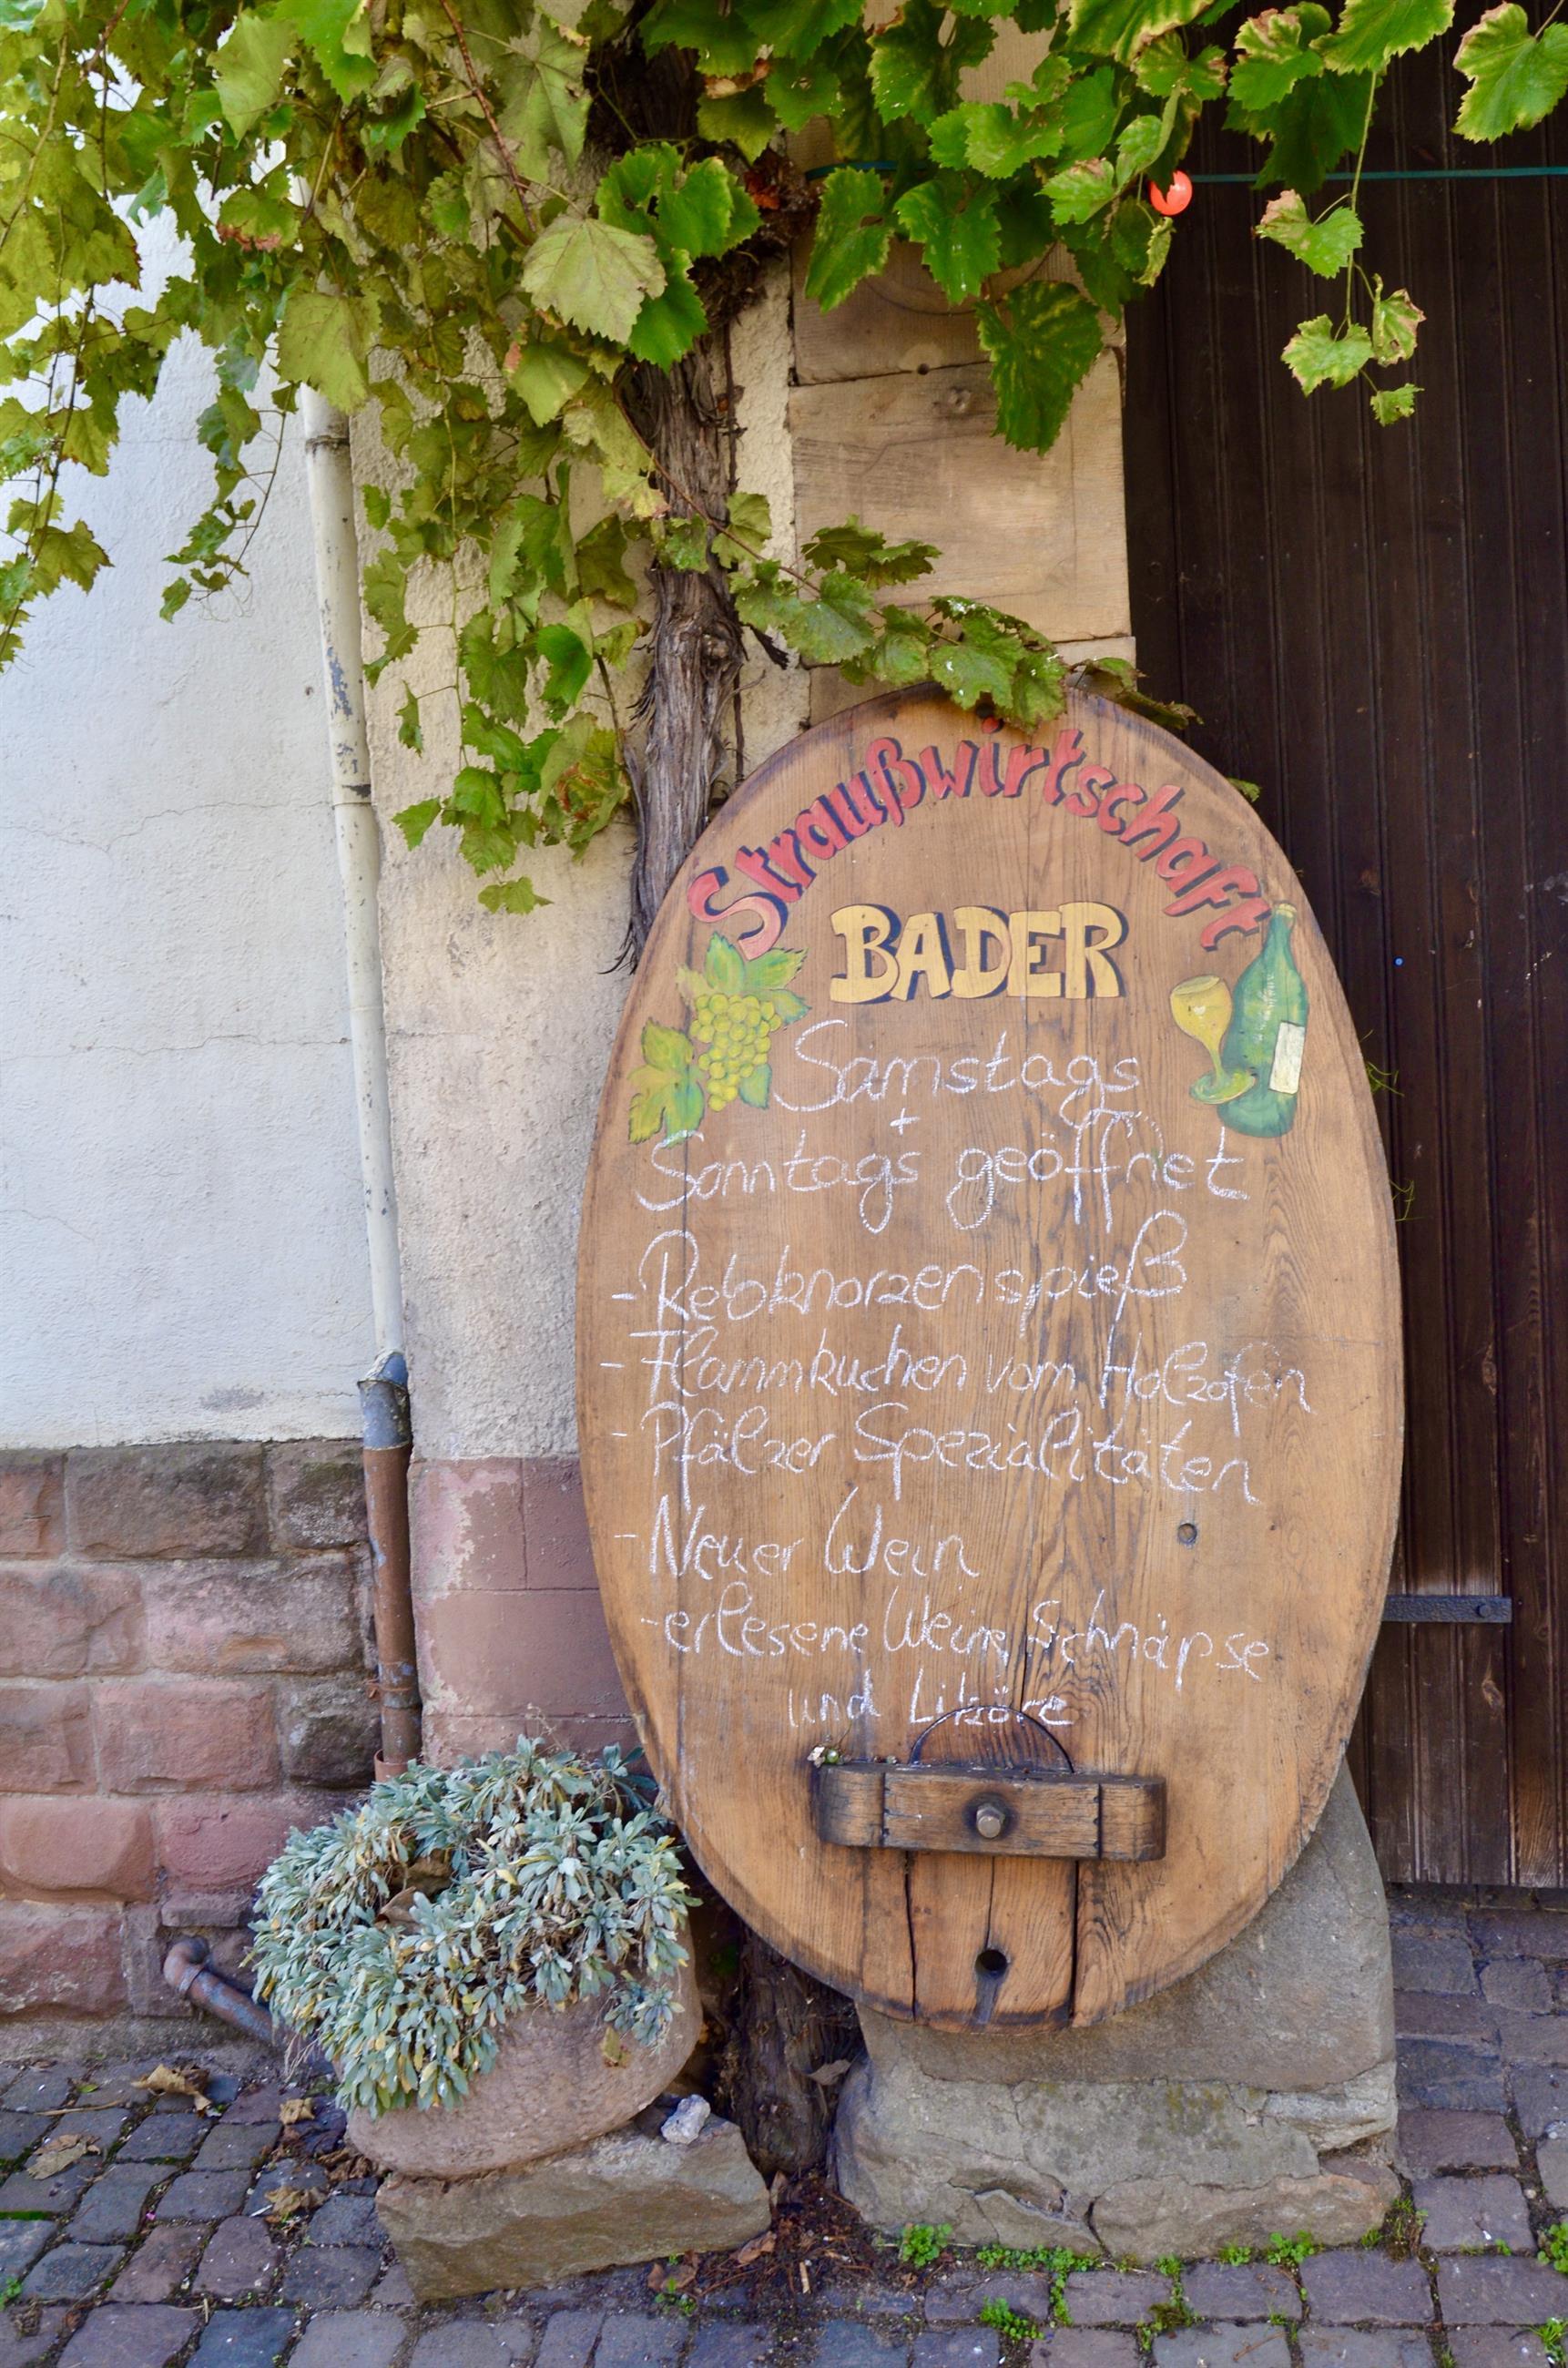 Straußwirtschaft
BADER
Samstags
+
Sonntags geöffnet
- Rebknorzenspieß
- Flammkuchen vom Holzofen
- Pfälzer Spezialitäten
- Neuer Wein
- erlesene Weine, Schnäpse
und Liköre